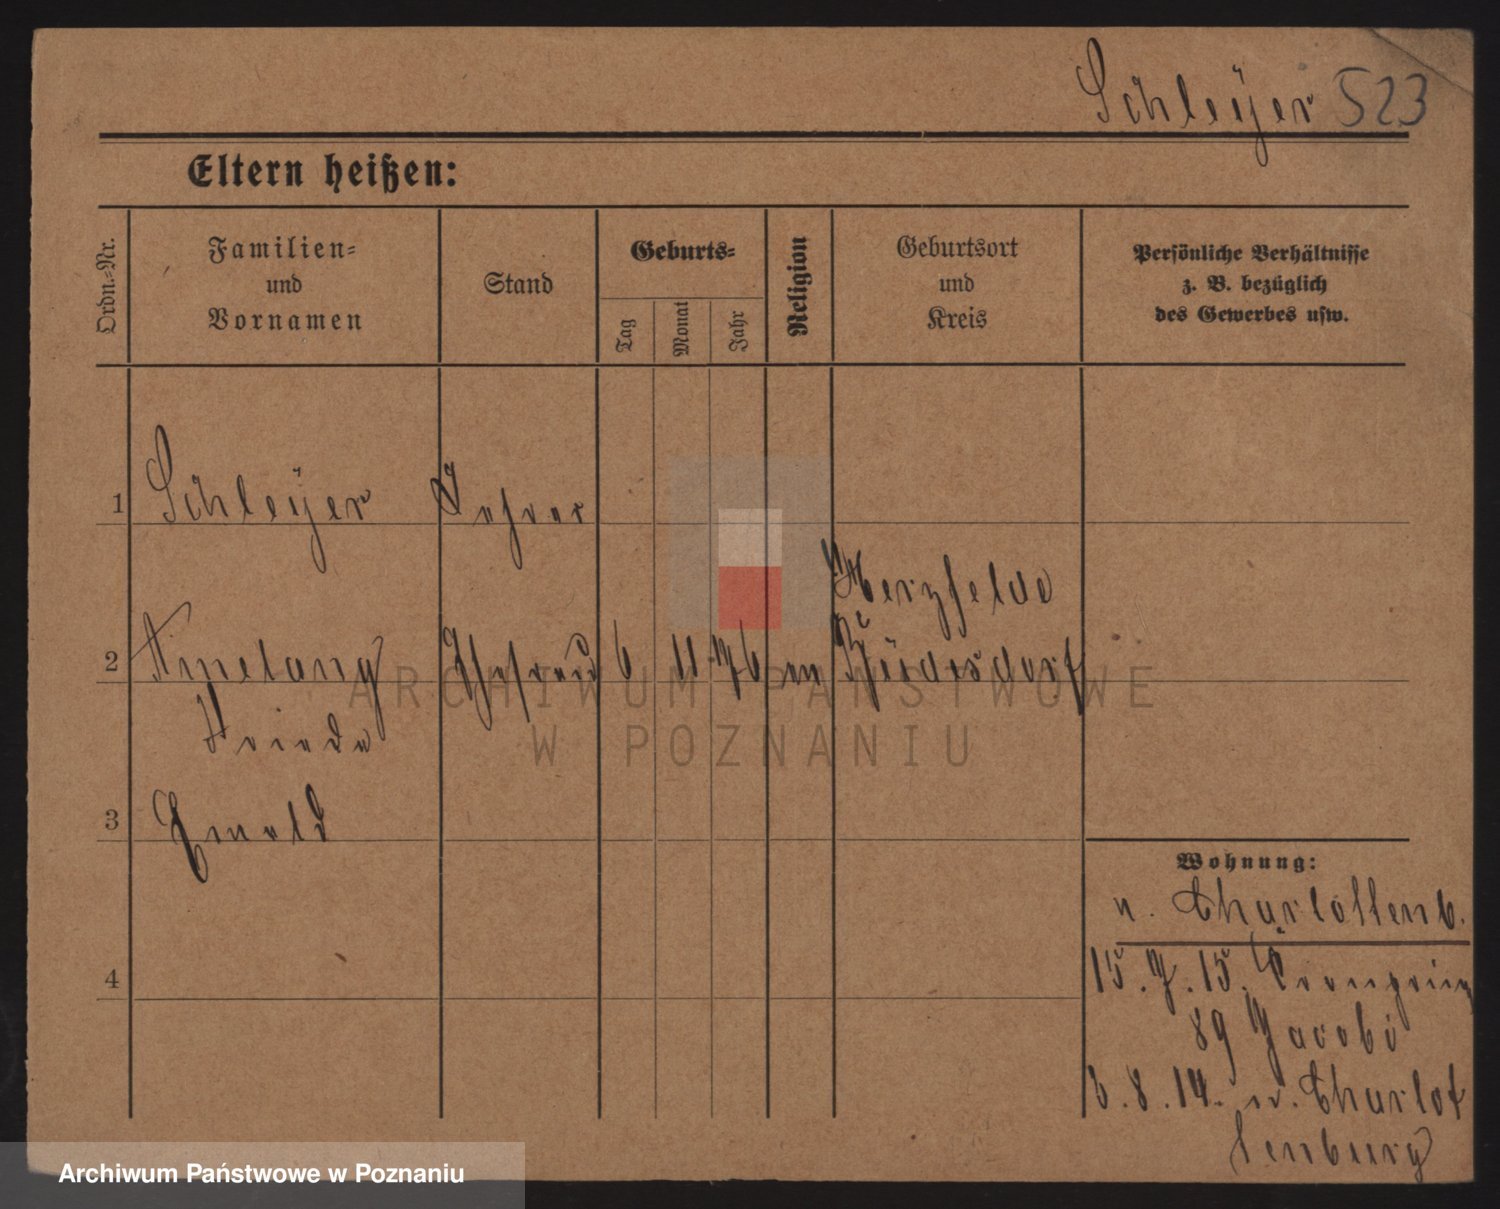 Schleÿer 523
Eltern heißen:
Ordn.-Nr.
Familien-
und
Vornamen
Stand
Geburts-
Tag
Monat
Jahr
Religion
Geburtsort
und
Kreis
Persönliche Verhältnisse
z. B. bezüglich
des Gewerbes usw.
1 Schleÿer Lehrer
Herzfelde
2 Amelang Ehefrau 6 11 76
Frieda
3
Wohnung:
n. Charlottenb.
15. 7. 15. Kronprinz
89 Jacobi
3. 8. 14. n. Charlot
tenburg
4
ARCHIWUM PAŃSTWOWE
W POZNANIU
Archiwum Państwowe w Poznaniu